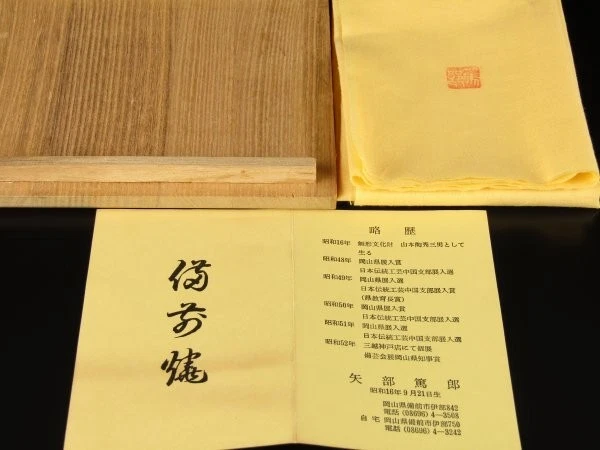 備前燒
略歴
昭和16年 無形文化財 山本陶秀三男として
生る
昭和48年 岡山県展入賞
日本伝統工芸中国支部展入選
昭和49年 岡山県展入選
日本伝統工芸中国支部展入賞
(県教育長賞)
昭和50年 岡山県展入賞
日本伝統工芸中国支部展入選
昭和51年 岡山県展入選
日本伝統工芸中国支部展入選
昭和52年 三越神戸店にて個展
備芸会展岡山県知事賞
矢部篤郎
昭和16年9月21日生
岡山県備前市伊部842
電話 (08696) 4-3568
自宅 岡山県備前市伊部750
電話 (08696) 4-3242